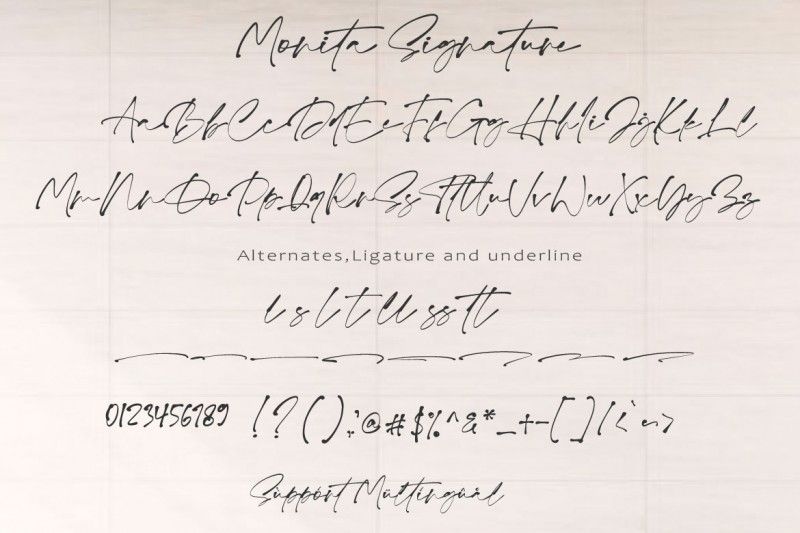 Monita Signature
Aa Bb Cc Dd Ee Ff Gg Hh Ii Jj Kk Ll
Mm Nn Oo Pp Qq Rr Ss Tt Uu Vv Ww Xx Yy Zz
Alternates,Ligature and underline
l s l t ll ss tt
0123456789 !?();:@#$%^&*_+-[]
Süppórt Múltíngüál